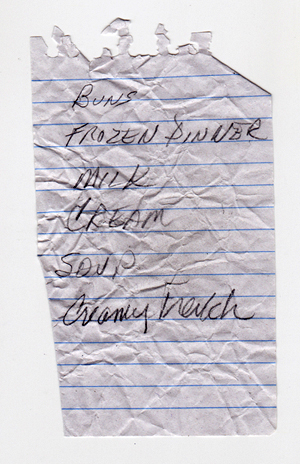 BUNS
FROZEN DINNER
MILK
CREAM
SOUP
Creamy French